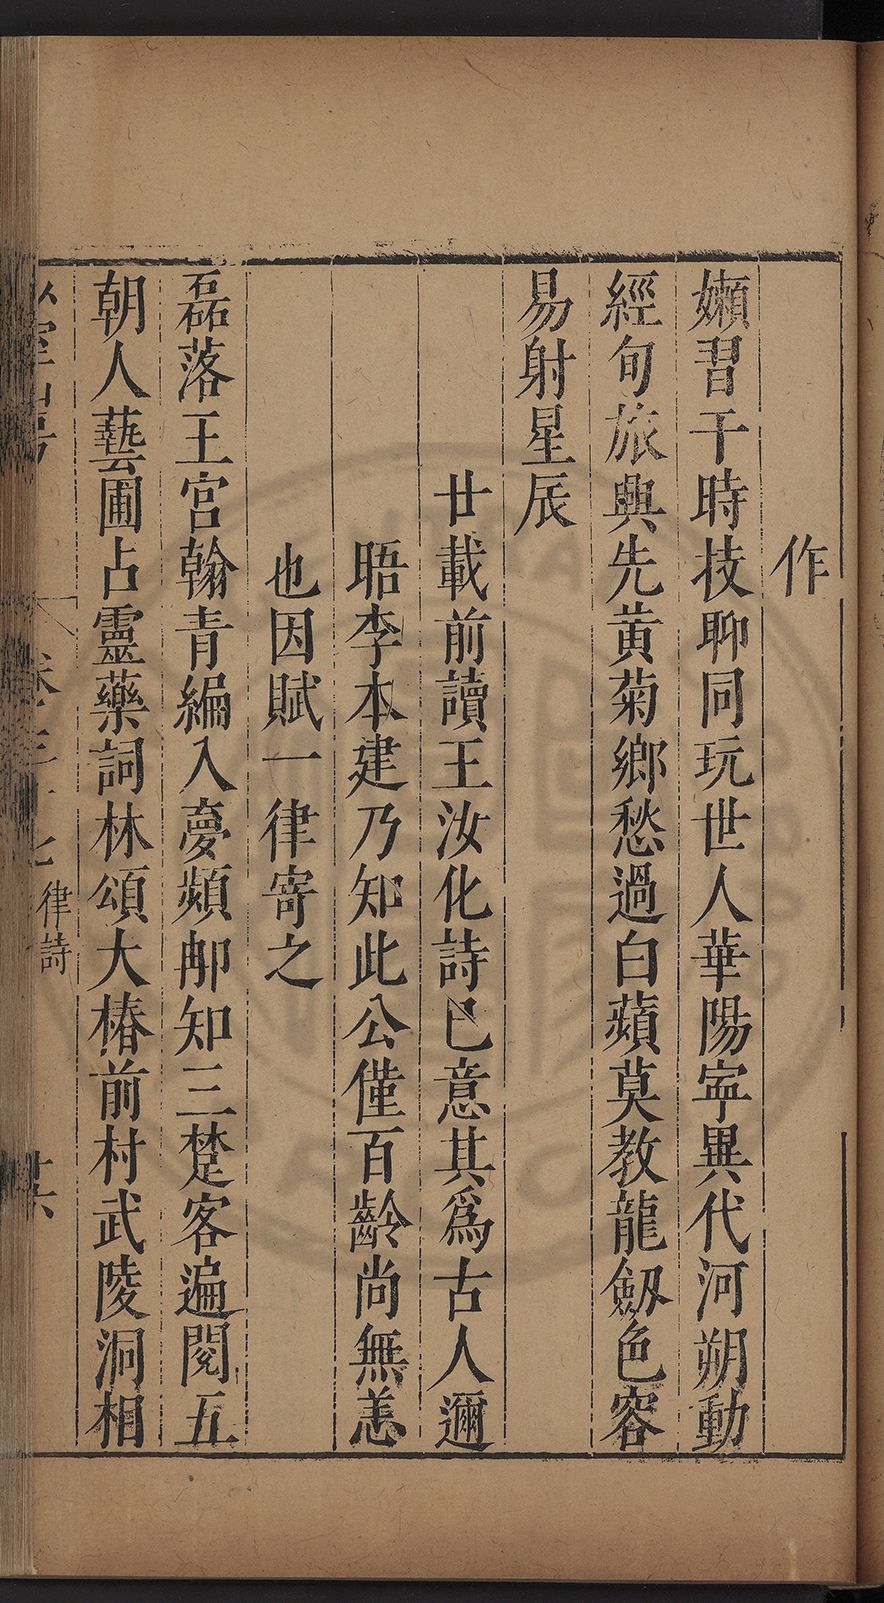 作
嬾習干時技聊同玩世人華陽寧異代河朔動
經旬旅興先黄菊鄉愁過白蘋莫教龍劔色容
易射星辰
廿載前讀王汝化詩已意其爲古人邇
晤李本建乃知此公僅百齡尚無恙
也因賦一律寄之
磊落王宮翰青編入夢頻䢴知三楚客遍閱五
朝人藝圃占靈藥詞林頌大椿前村武陵洞相
律詩